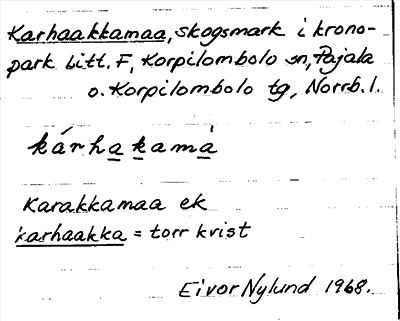 Karhaakkamaa, skogsmark i krono-
park Litt. F, Korpilombolo sn, Pajala
o. Korpilombolo tg, Norrb. l.
kárhakamà
Karakkamaa ek
karhaakka = torr kvist
Eivor Nylund 1968.